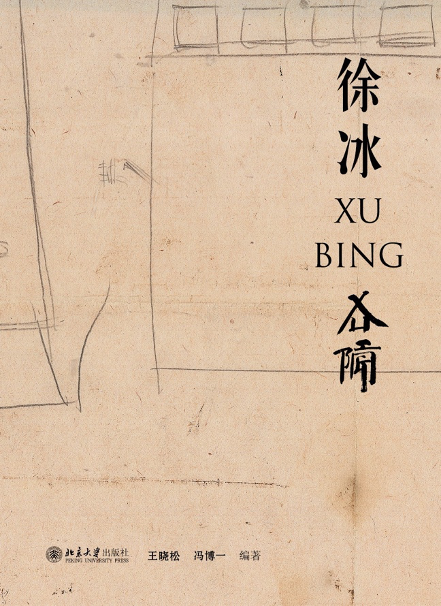 徐
冰
XU
BING
北京大学出版社
PEKING UNIVERSITY PRESS
王晓松 冯博一 编著